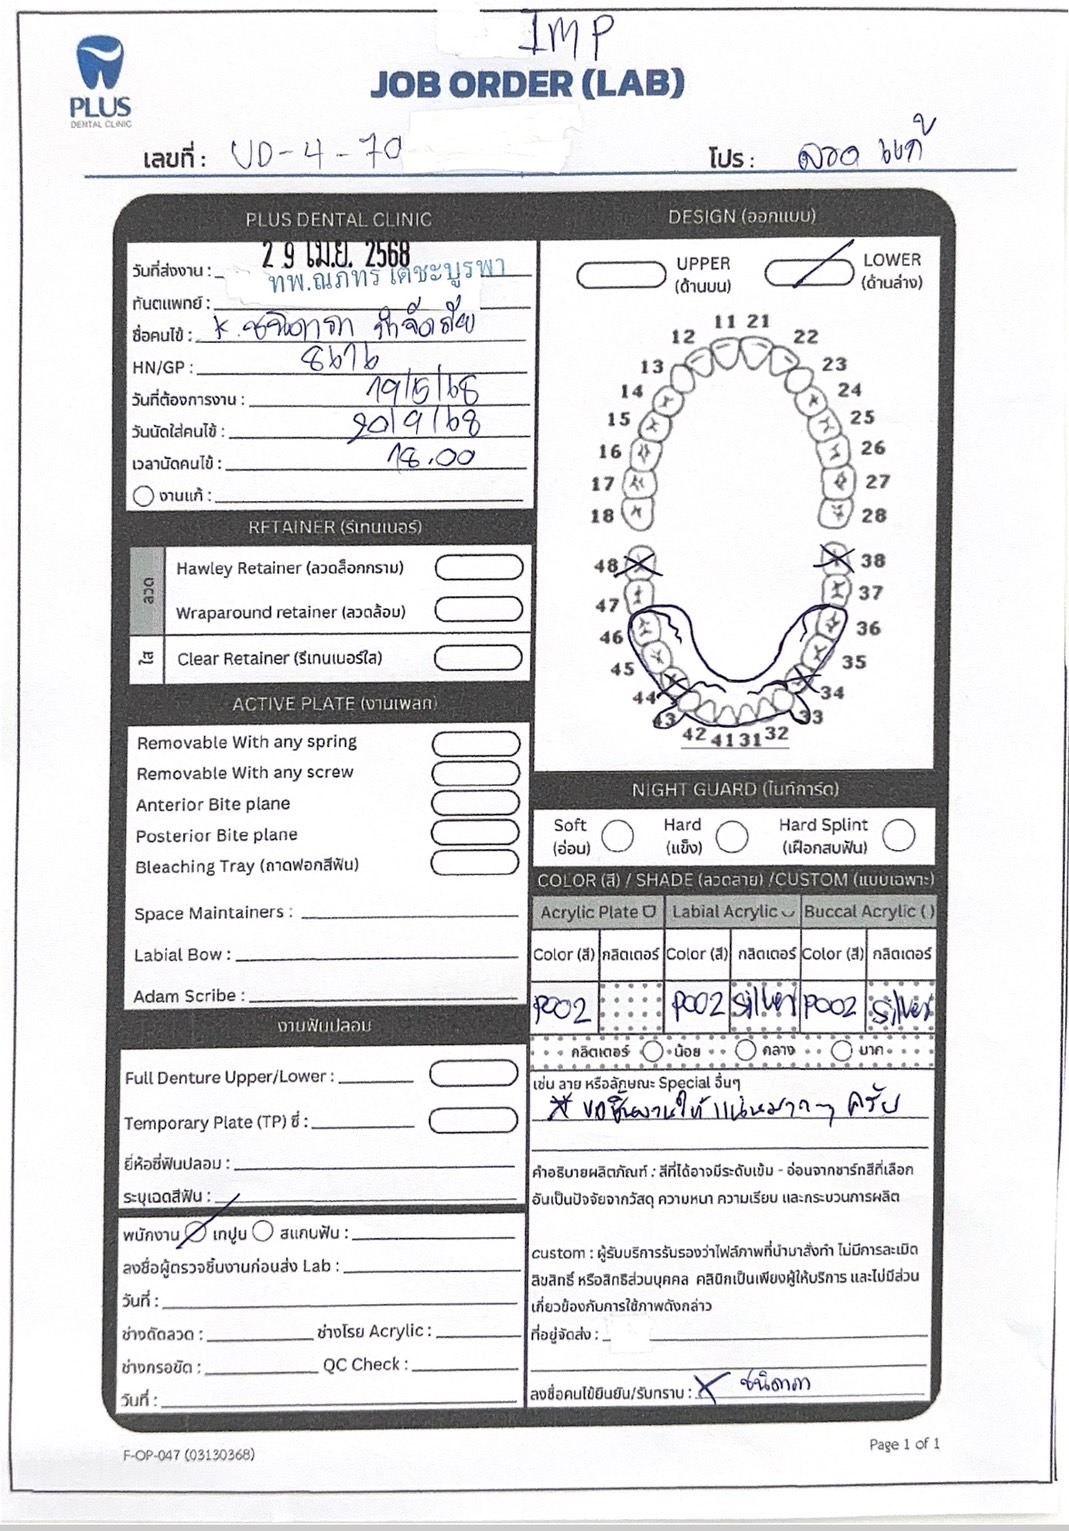 IMP
PLUS
DENTAL CLINIC
JOB ORDER (LAB)
เลขที่ : UD-4-70
โปร : ลวด แก้
PLUS DENTAL CLINIC
วันที่ส่งงาน : 29 เม.ย. 2568
ทันตแพทย์ : ทพ.ณภัทร เดชะบูรพา
ชื่อคนไข้ : K.ชนิดาภา
HN/GP : 8676
วันที่ต้องการงาน : 19/5/68
วันนัดใส่คนไข้ : 20/9/68
เวลานัดคนไข้ : 18.00
งานแก้ :
RETAINER (รีเทนเนอร์)
ลวด
Hawley Retainer (ลวดล็อกกราม)
Wraparound retainer (ลวดล้อม)
ใส
Clear Retainer (รีเทนเนอร์ใส)
ACTIVE PLATE (งานเพลท)
Removable With any spring
Removable With any screw
Anterior Bite plane
Posterior Bite plane
Bleaching Tray (ถาดฟอกสีฟัน)
Space Maintainers :
Labial Bow :
Adam Scribe :
งานฟันปลอม
Full Denture Upper/Lower :
Temporary Plate (TP) ซี่ :
ยี่ห้อซี่ฟันปลอม :
ระบุเฉดสีฟัน :
พนักงาน เทปูน สแกนฟัน :
ลงชื่อผู้ตรวจชิ้นงานก่อนส่ง Lab :
วันที่ :
ช่างดัดลวด : ช่างโรย Acrylic :
ช่างกรอขัด : QC Check :
วันที่ :
DESIGN (ออกแบบ)
UPPER (ด้านบน)
LOWER (ด้านล่าง)
11 21
12 22
13 23
14 24
15 25
16 26
17 27
18 28
48 38
47 37
46 36
45 35
44 34
43 33
42 41 31 32
NIGHT GUARD (ไนท์การ์ด)
Soft (อ่อน) Hard (แข็ง) Hard Splint (เฝือกสบฟัน)
COLOR (สี) / SHADE (ลวดลาย) /CUSTOM (แบบเฉพาะ)
Acrylic Plate Labial Acrylic Buccal Acrylic ( )
Color (สี) กลิตเตอร์ Color (สี) กลิตเตอร์ Color (สี) กลิตเตอร์
P002 P002 Silver P002 Silver
กลิตเตอร์ น้อย กลาง มาก
เช่น ลาย หรือลักษณะ Special อื่นๆ
* ขอชิ้นงานให้แน่นมากๆ ครับ
คำอธิบายผลิตภัณฑ์ : สีที่ได้อาจมีระดับเข้ม - อ่อนจากชาร์ทสีที่เลือก
อันเป็นปัจจัยจากวัสดุ ความหนา ความเรียบ และกระบวนการผลิต
custom : ผู้รับบริการรับรองว่าไฟล์ภาพที่นำมาสั่งทำ ไม่มีการละเมิด
ลิขสิทธิ์ หรือสิทธิส่วนบุคคล คลินิกเป็นเพียงผู้ให้บริการ และไม่มีส่วน
เกี่ยวข้องกับการใช้ภาพดังกล่าว
ที่อยู่จัดส่ง :
ลงชื่อคนไข้ยืนยัน/รับทราบ : X ชนิดาภา
F-OP-047 (03130368)
Page 1 of 1